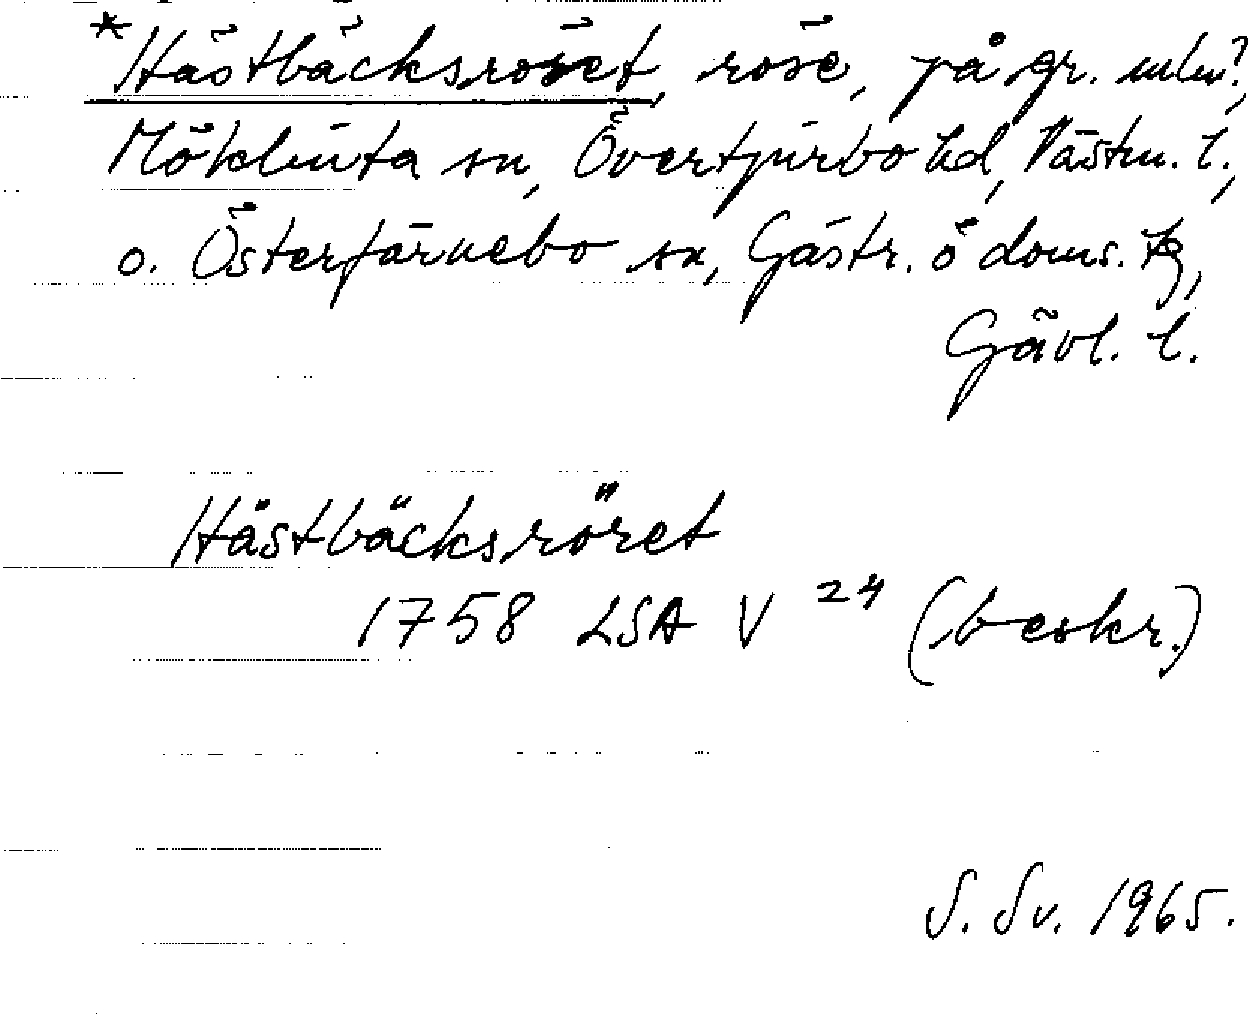 *Hästbäcksröset, röse, på gr. mlm?,
Möklinta sn, Övertjurbo hd, Västm. l.,
o. Österfärnebo sn, Gästr. ö doms. tg,
Gävl. l.
Hästbäcksröret
1758 LSA V 24 (beskr.)
S. Sv. 1965.